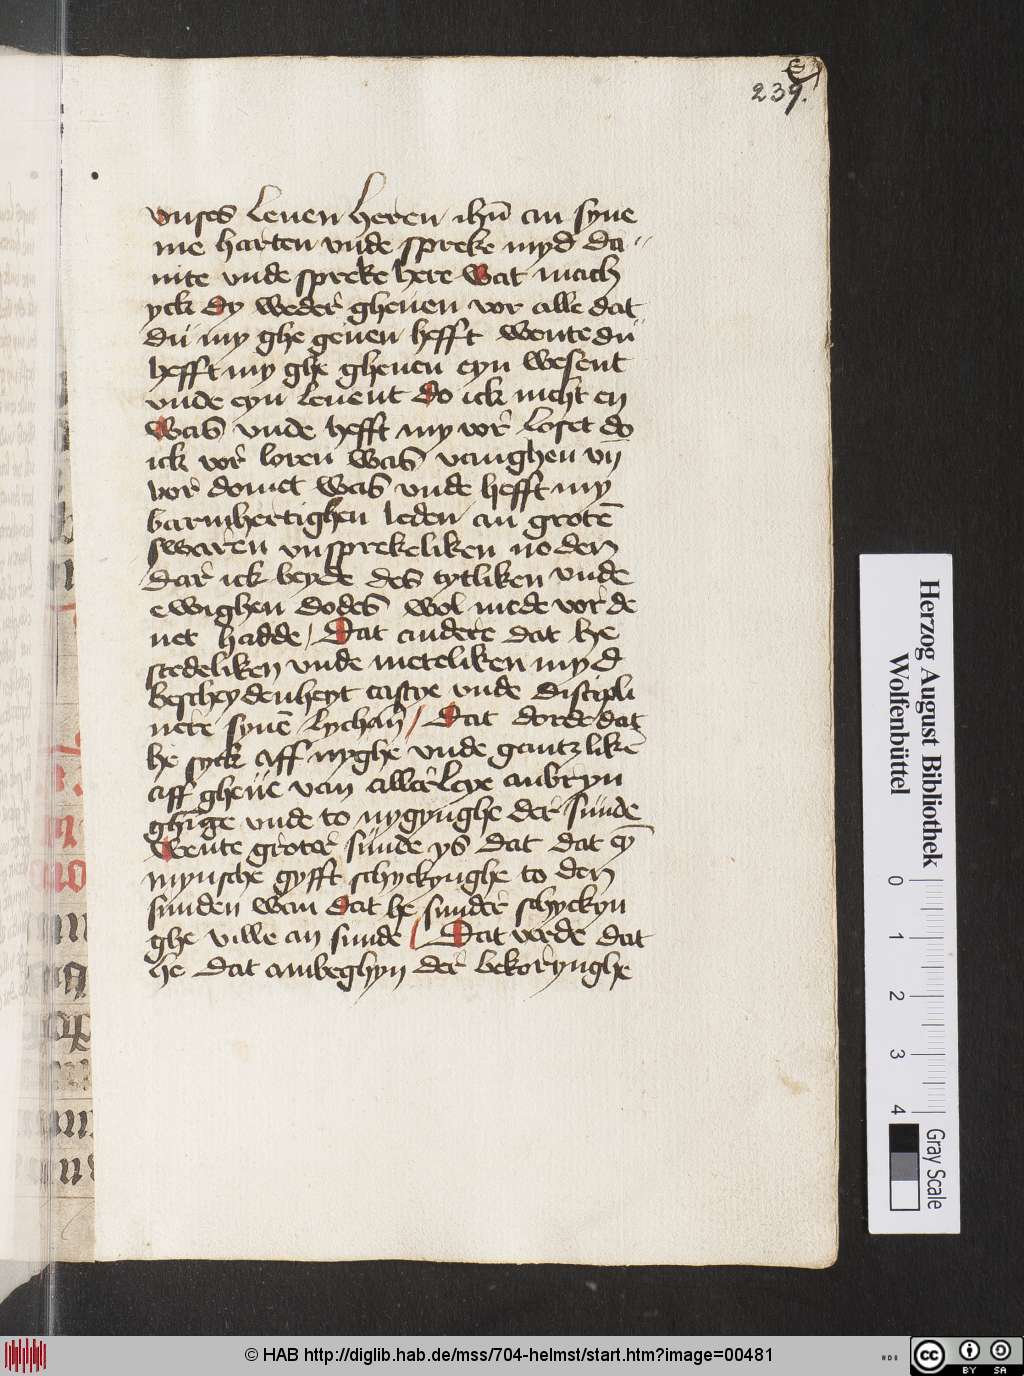 239.
vnses leuen heren ihū an syne
me harten vnde spreke myd da„
uite vnde spreke here wat mach
yck dy weder gheuen vor alle dat
du my ghe geuen hefft wente du
hefft my ghe gheuen eyn wesent
vnde eyn leuent do ick nicht en
was vnde hefft my vor loset do
ick vor loren was vanghen vn̄
vor domet was vnde hefft my
barmhertighen leden an grotē
swaren vnsprekeliken noden
dar ick beyde des tytliken vnde
ewighen dodes wol mede vor de
net hadde / Dat andere dat he
stedeliken vnde meteliken myd
bescheydenheyt castye vnde discipli
nere synē lychā / Dat dorde dat
he syck aff nyghe vnde gantzlikē
aff gheue van allerleye anbryn
ghīge vnde to nygynghe der sunde
wente groter sunde ys dat dat ey̅
mynsche gyfft schyckynghe to den
sunden wan dat he sunder schyckyn
ghe ville an sunde / Dat verde dat
he dat ambeghyn der bekorynghe
Herzog August Bibliothek
Wolfenbüttel
0
1
2
3
4
Gray Scale
© HAB http://diglib.hab.de/mss/704-helmst/start.htm?image=00481
cc
BY SA